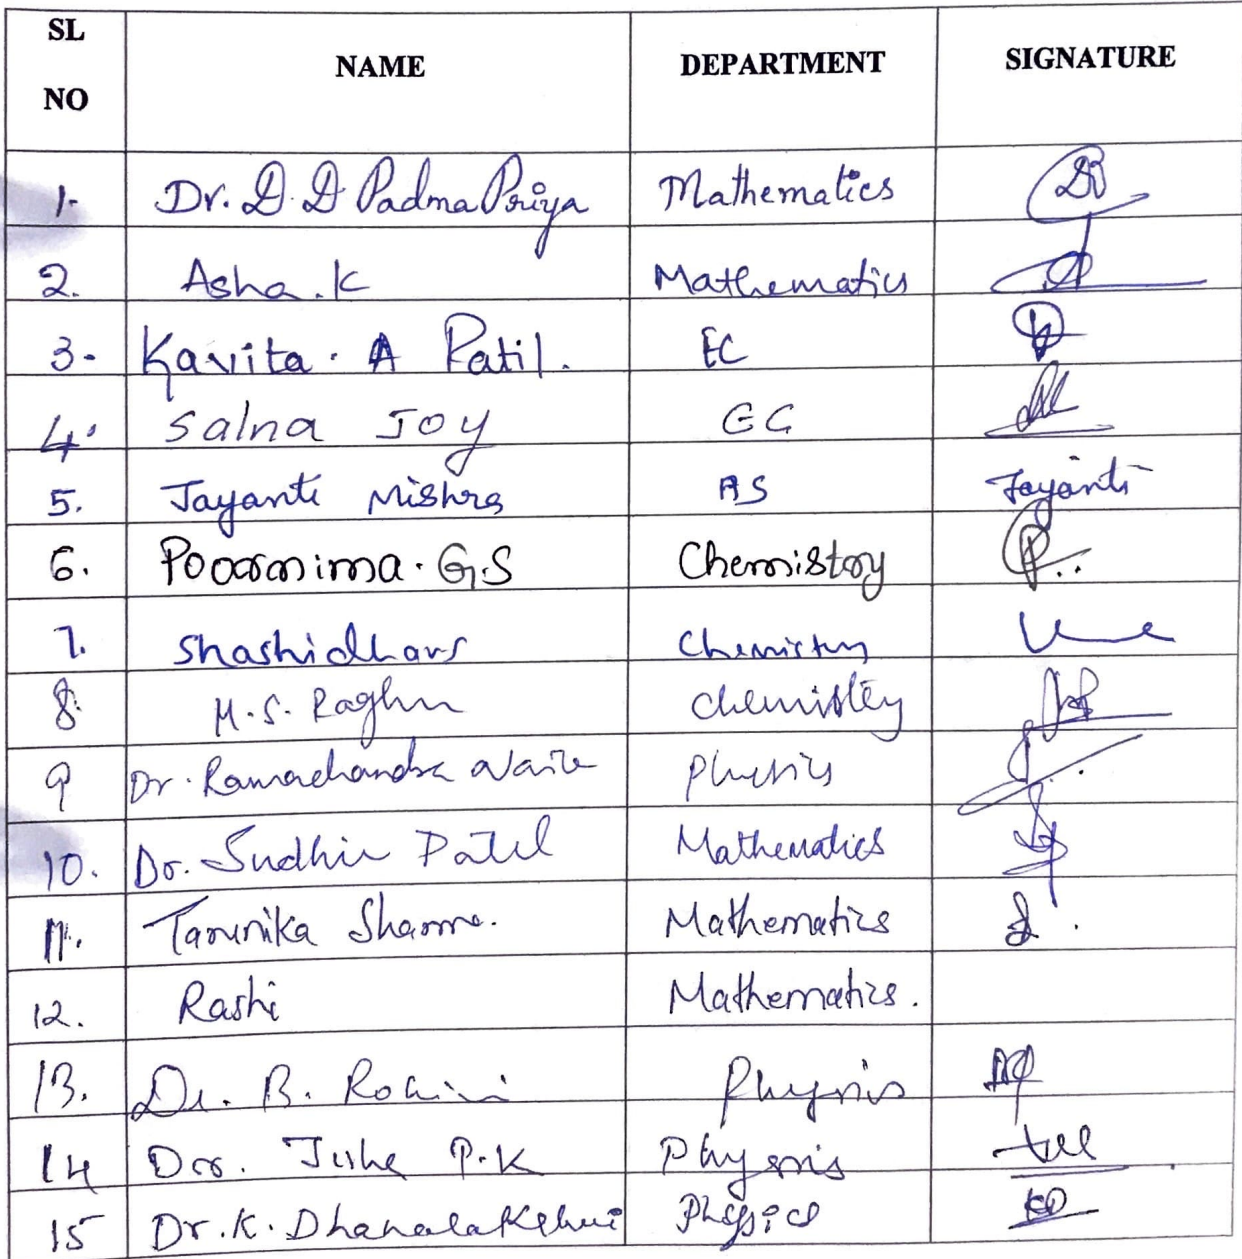 SL NO NAME DEPARTMENT SIGNATURE
1. Dr. D. D PadmaPriya Mathematics
2. Asha. K Mathematics
3. Kavita. A Patil. EC
4. Salna Joy EC
5. Jayanti Mishra AS Jayanti
6. Poornima. G.S Chemistry
7. Shashidhars Chemistry
8. M.S. Raghu Chemistry
9 Dr. Ramachandra Naik Physics
10. Dr. Sudhir Patil Mathematics
11. Tarunika Sharma. Mathematics
12. Rashi Mathematics.
13. Dr. B. Rohini Physics
14 Dr. P.K Physics
15 Dr. K. Dhanalakshmi Physics